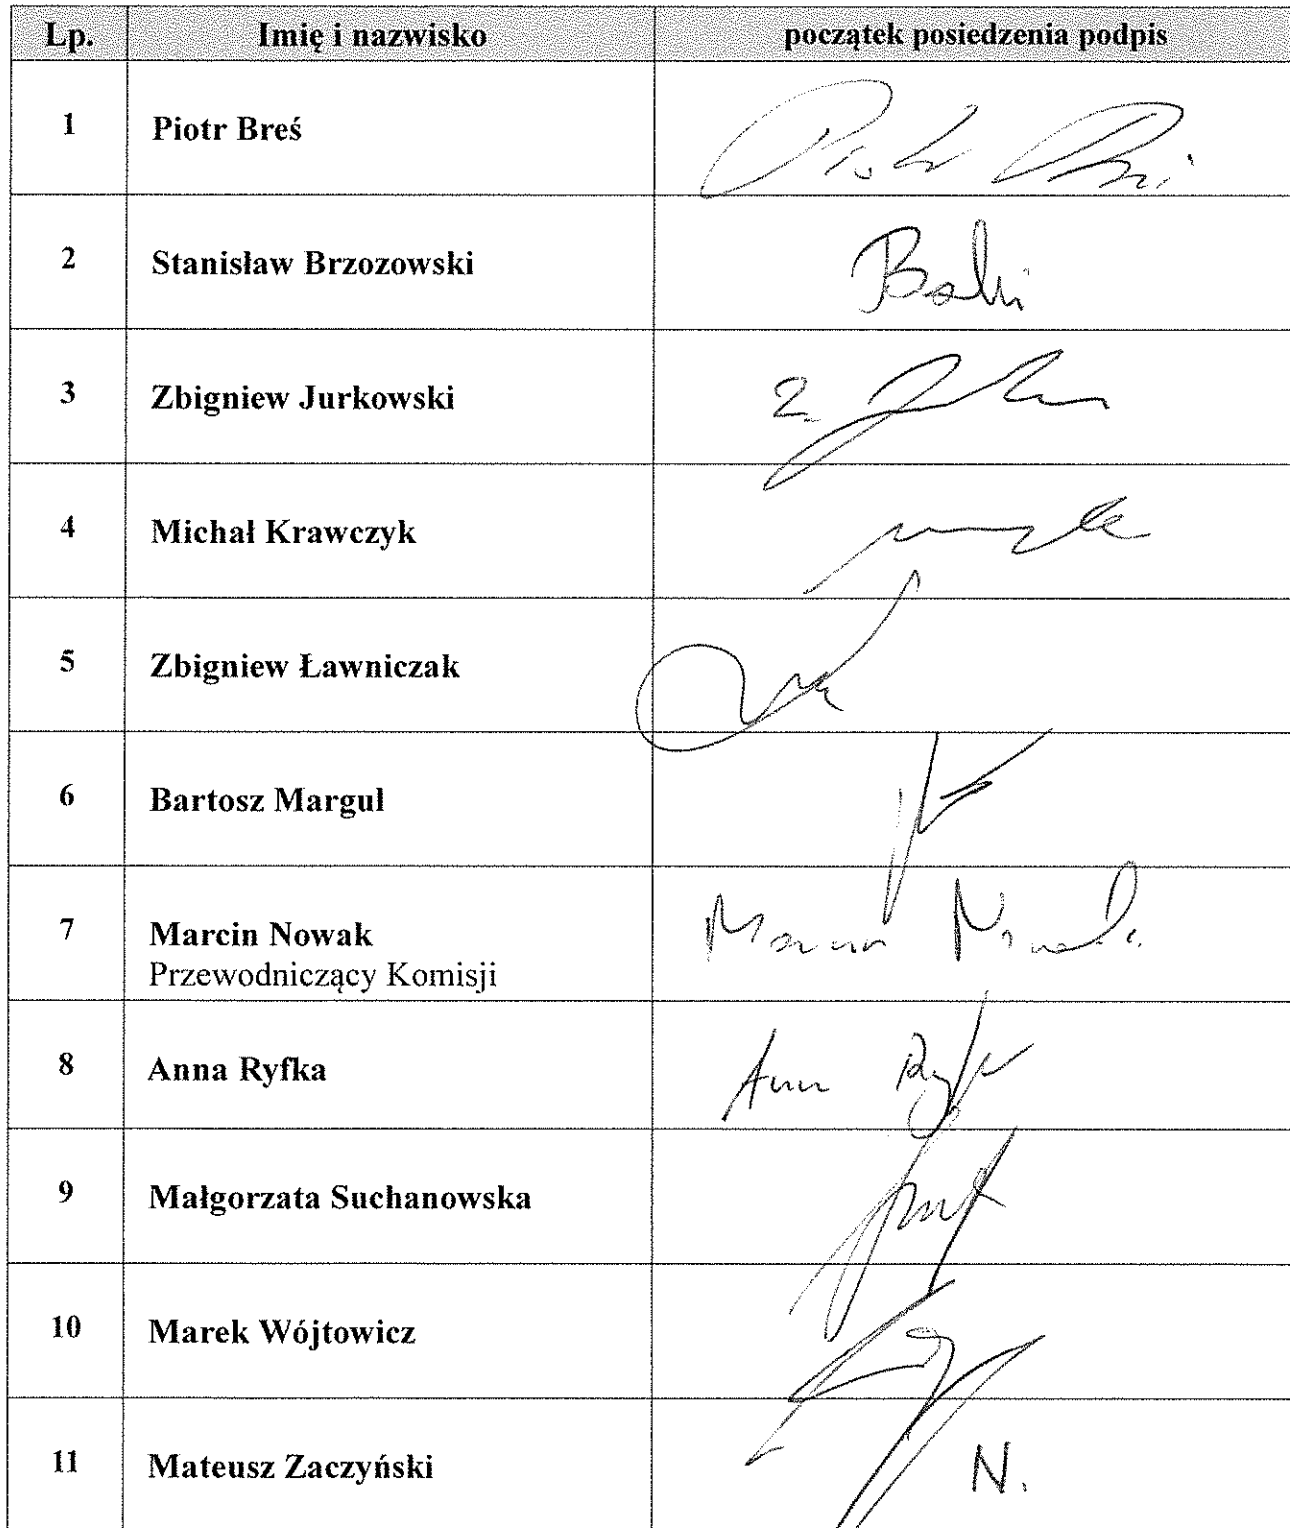 Lp. Imię i nazwisko początek posiedzenia podpis
1 Piotr Breś
2 Stanisław Brzozowski
3 Zbigniew Jurkowski
4 Michał Krawczyk
5 Zbigniew Ławniczak
6 Bartosz Margul
7 Marcin Nowak Marcin Nowak
Przewodniczący Komisji
8 Anna Ryfka
9 Małgorzata Suchanowska
10 Marek Wójtowicz
11 Mateusz Zaczyński N.